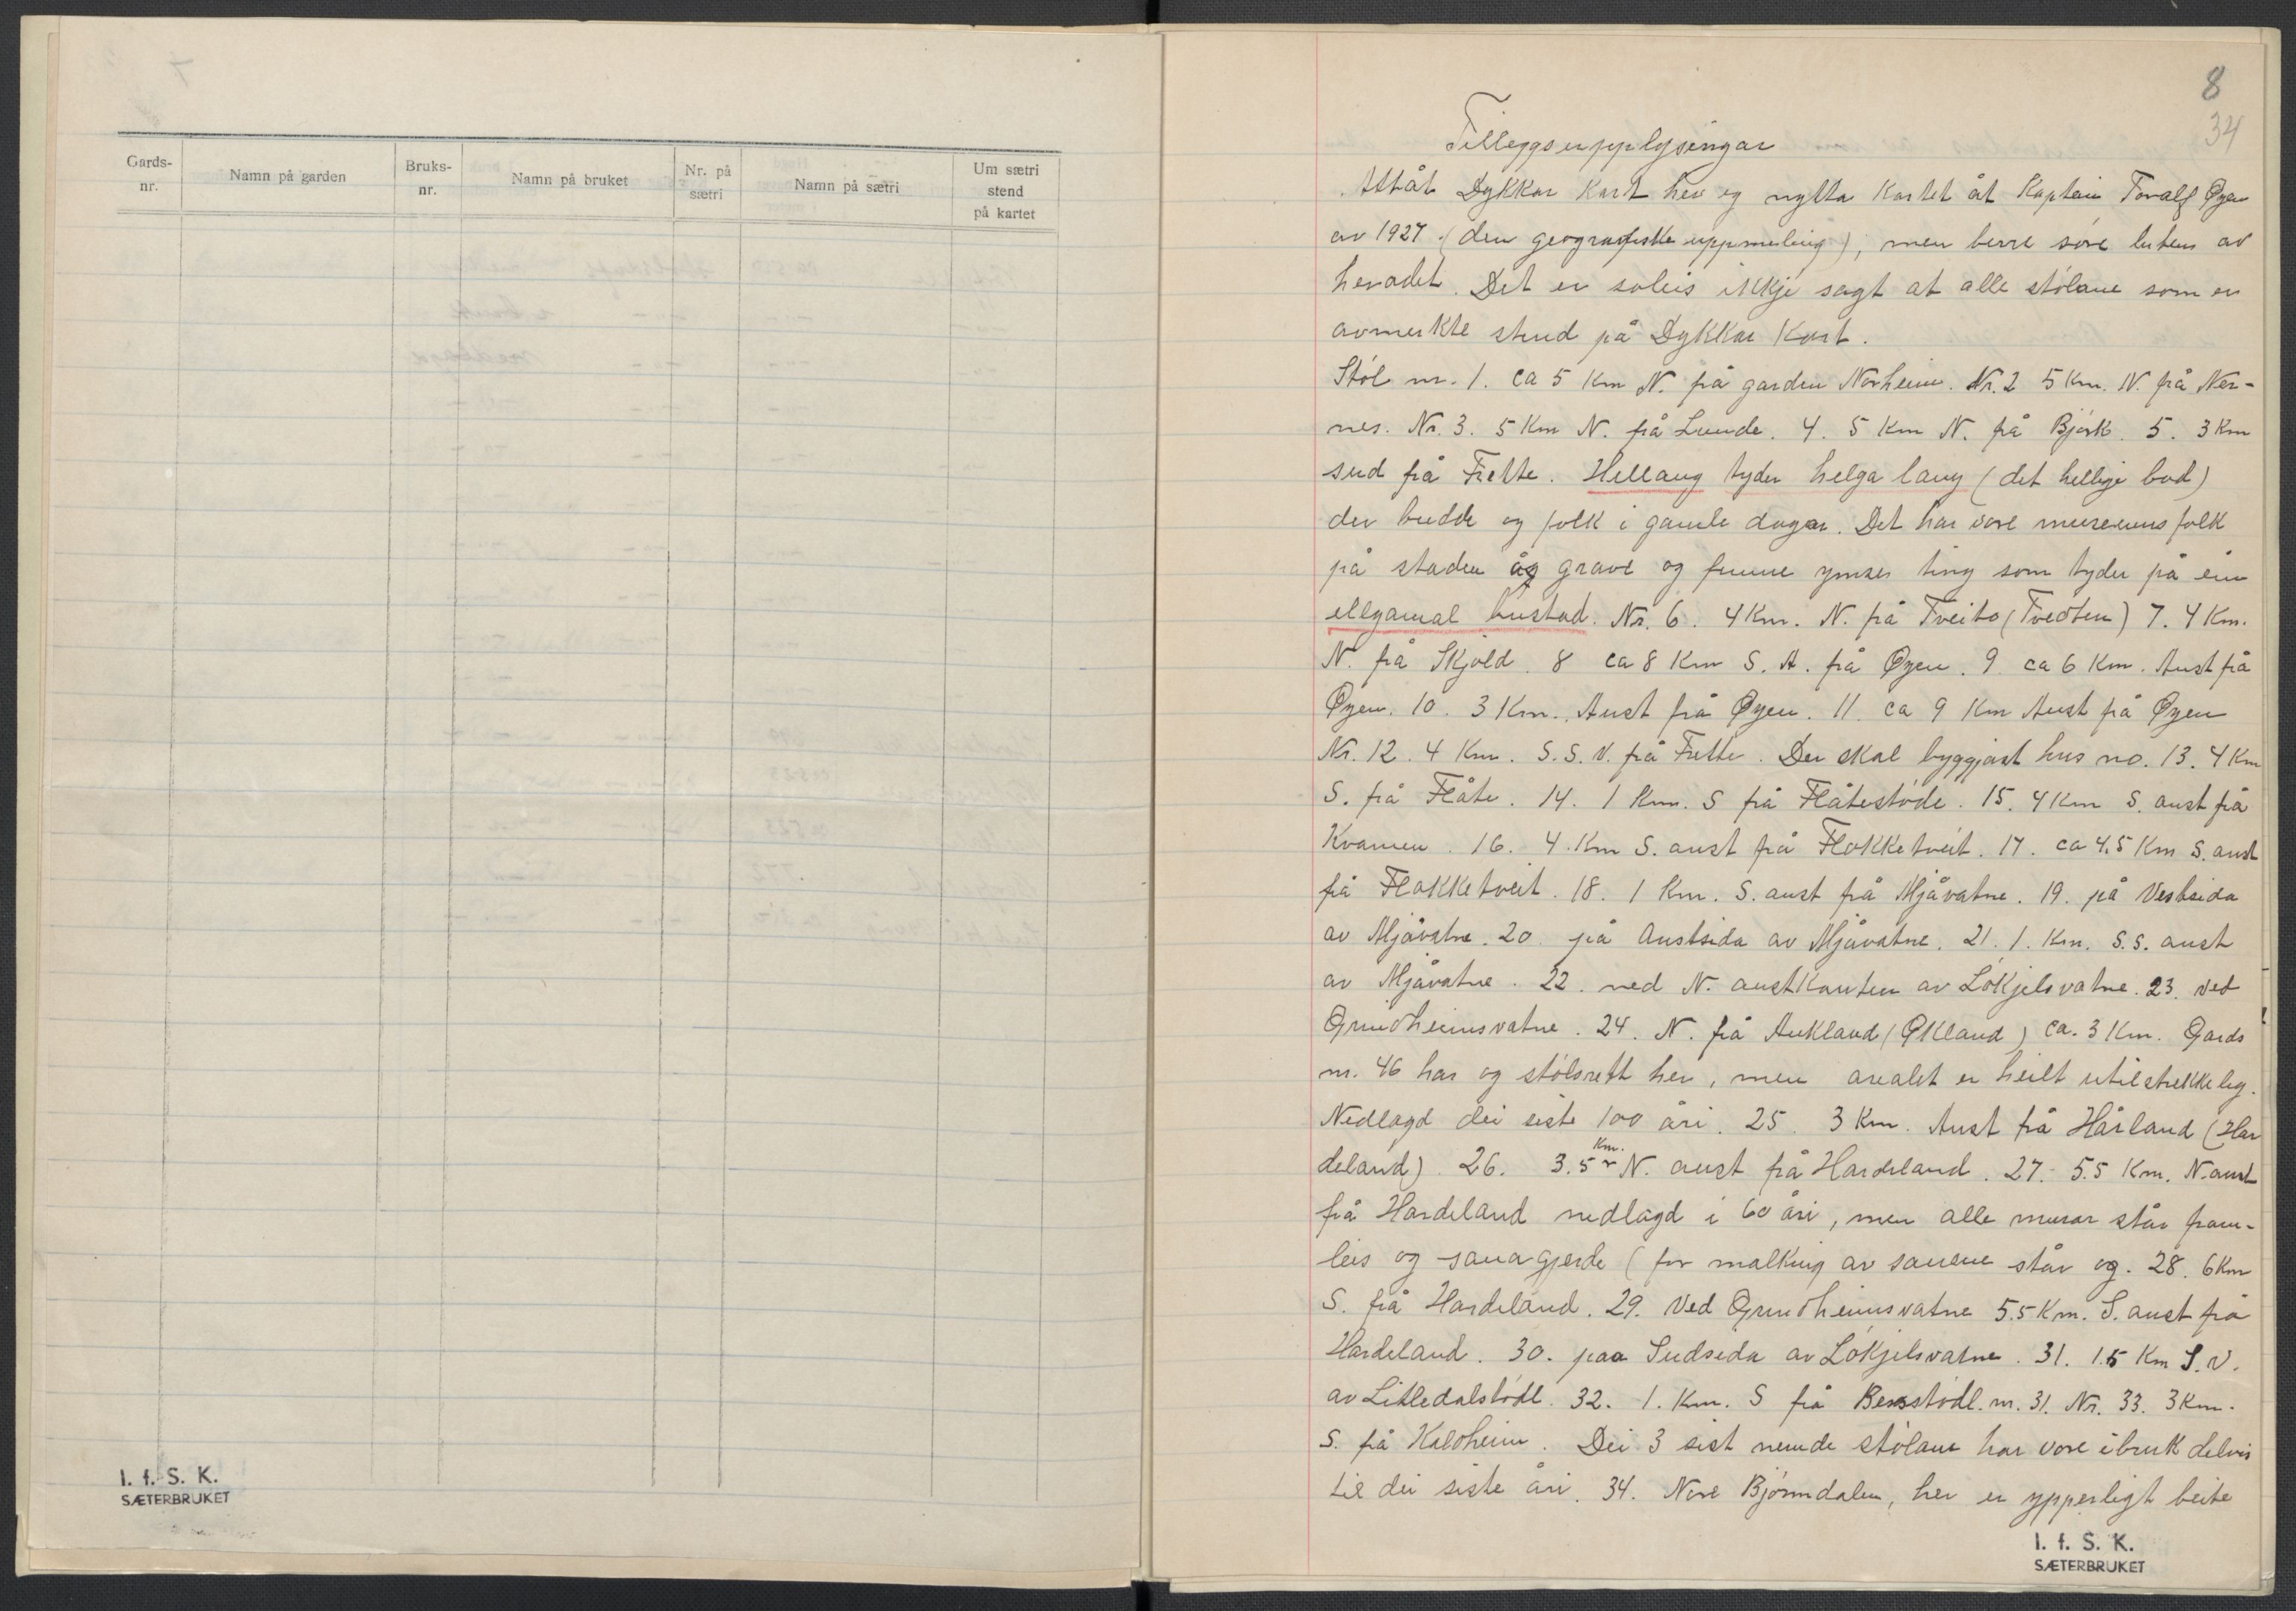 Gards-
nr.
Namn på garden
Bruks-
nr.
Namn på bruket
Nr. på
sætri
Namn på sætri
Um sætri
stend
på kartet
I. f. S. K.
SÆTERBRUKET
8
34
Tilleggsupplysingar
Attåt Dykkar Kart hev eg nytta Kartet åt Kaptein Toralf Øyen
av 1927 (den geografiske uppmeling), men berre søre luten av
heradet. Det er soleis ikkje sagt at alle stølane som er
avmerkte stend på Dykkar Kart.
Støl nr. 1. ca 5 Km N. frå garden Norheim. Nr. 2 5 Km. N. frå Ner-
nes. Nr. 3. 5 Km N. frå Lunde. 4. 5 Km N. frå Bjørk. 5. 3 Km
sud frå Frette. Hellaug tyder helga laug (det hellige bad)
der budde og folk i gamle dagar. Det har vore museumsfolk
på staden og grave og funne ymse ting som tyder på ein
ellgamal bustad. Nr. 6. 4 Km. N. frå Tveito (Tvedten) 7. 4 Km.
N. frå Skjold. 8 ca 8 Km S. A. frå Øyen. 9 ca 6 Km. Aust frå
Øyen. 10. 3 Km. Aust frå Øyen. 11. ca 9 Km Aust frå Øyen
Nr. 12. 4 Km. S. S. V. frå Frette. Der skal byggjast hus no. 13. 4 Km
S. frå Flåte. 14. 1 Km. S frå Flåtestøde. 15. 4 Km S. aust frå
Kvamen. 16. 4. Km S. aust frå Flokketveit. 17. ca 4,5 Km S. aust
frå Flokketveit. 18. 1 Km. S. aust frå Mjåvatne. 19. på Vestsida
av Mjåvatne. 20. på Austsida av Mjåvatne. 21. 1. Km. S. S. aust
av Mjåvatne. 22. ned N. austkanten av Løkjelsvatne. 23. ved
Grindheimsvatne. 24. N. frå Aukland (Økland) ca. 3 Km. Gards
nr. 46 har og stølsrett her, men arealet er heilt utilstrekkeleg.
Nedlagd dei siste 100 åri. 25. 3 Km. Aust frå Hårland (Har
deland). 26. 3.5 Km. N. aust frå Hardeland. 27. 5.5 Km. N. aust
frå Hardeland nedlagd i 60 åri, men alle murar står fram-
leis og sauagjerde (for malking av sauene står og. 28. 6 Km
S. frå Hardeland. 29. Ved Grindheimsvatne 5.5 Km. S. aust frå
Hardeland. 30. paa Sudsida av Løkjelsvatne. 31. 1.5 Km S. V.
av Litledalstødl. 32. 1. Km. S frå stødl. nr. 31. Nr. 33. 3 Km.
S. frå Kaldheim. Dei 3 sist nemde stølane har vore i bruk delvis
til dei siste åri. 34. Nore Bjørndalen, her er ypperligt beite
I. f. S. K.
SÆTERBRUKET